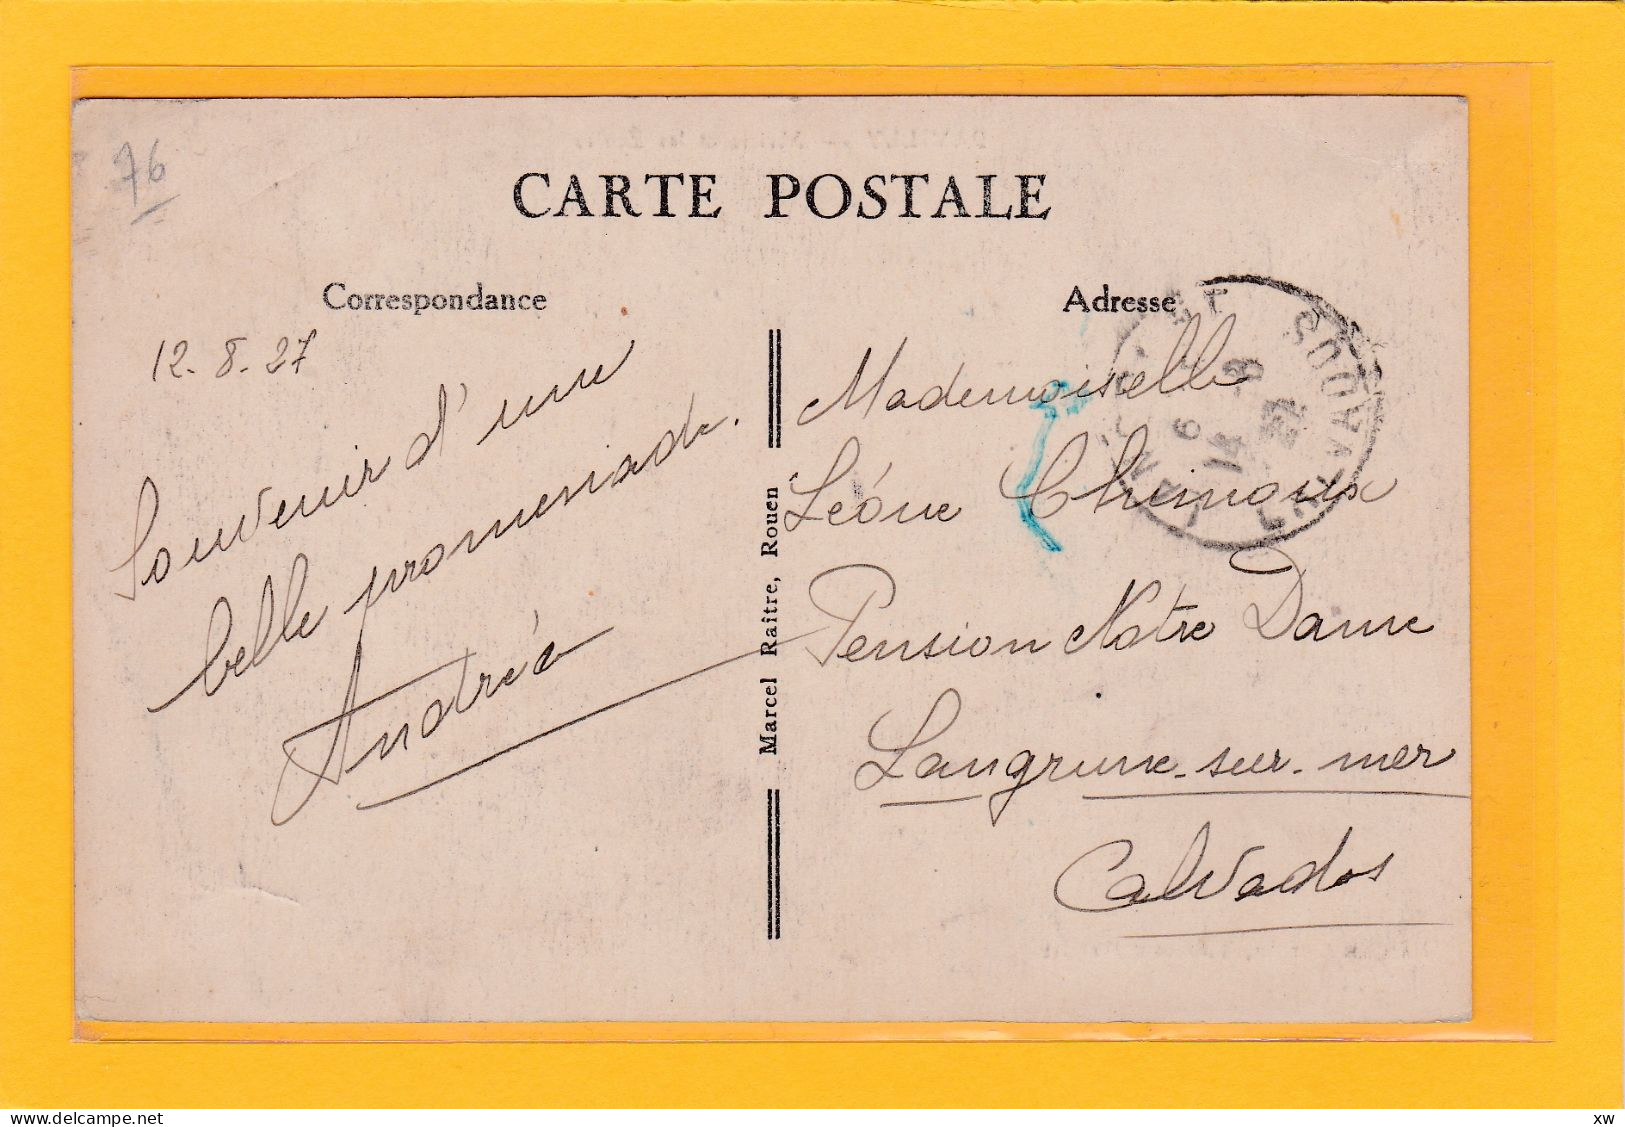 76
CARTE POSTALE
Correspondance
12.8.27
Souvenir d'une
belle promenade.
Andréa
Marcel Raitre, Rouen
Adresse
Mademoiselle
Léone
Pension Notre Dame
Langrune-sur-mer
Calvados
6
14 - 8
27
CALVADOS
Delcampe.net
xw